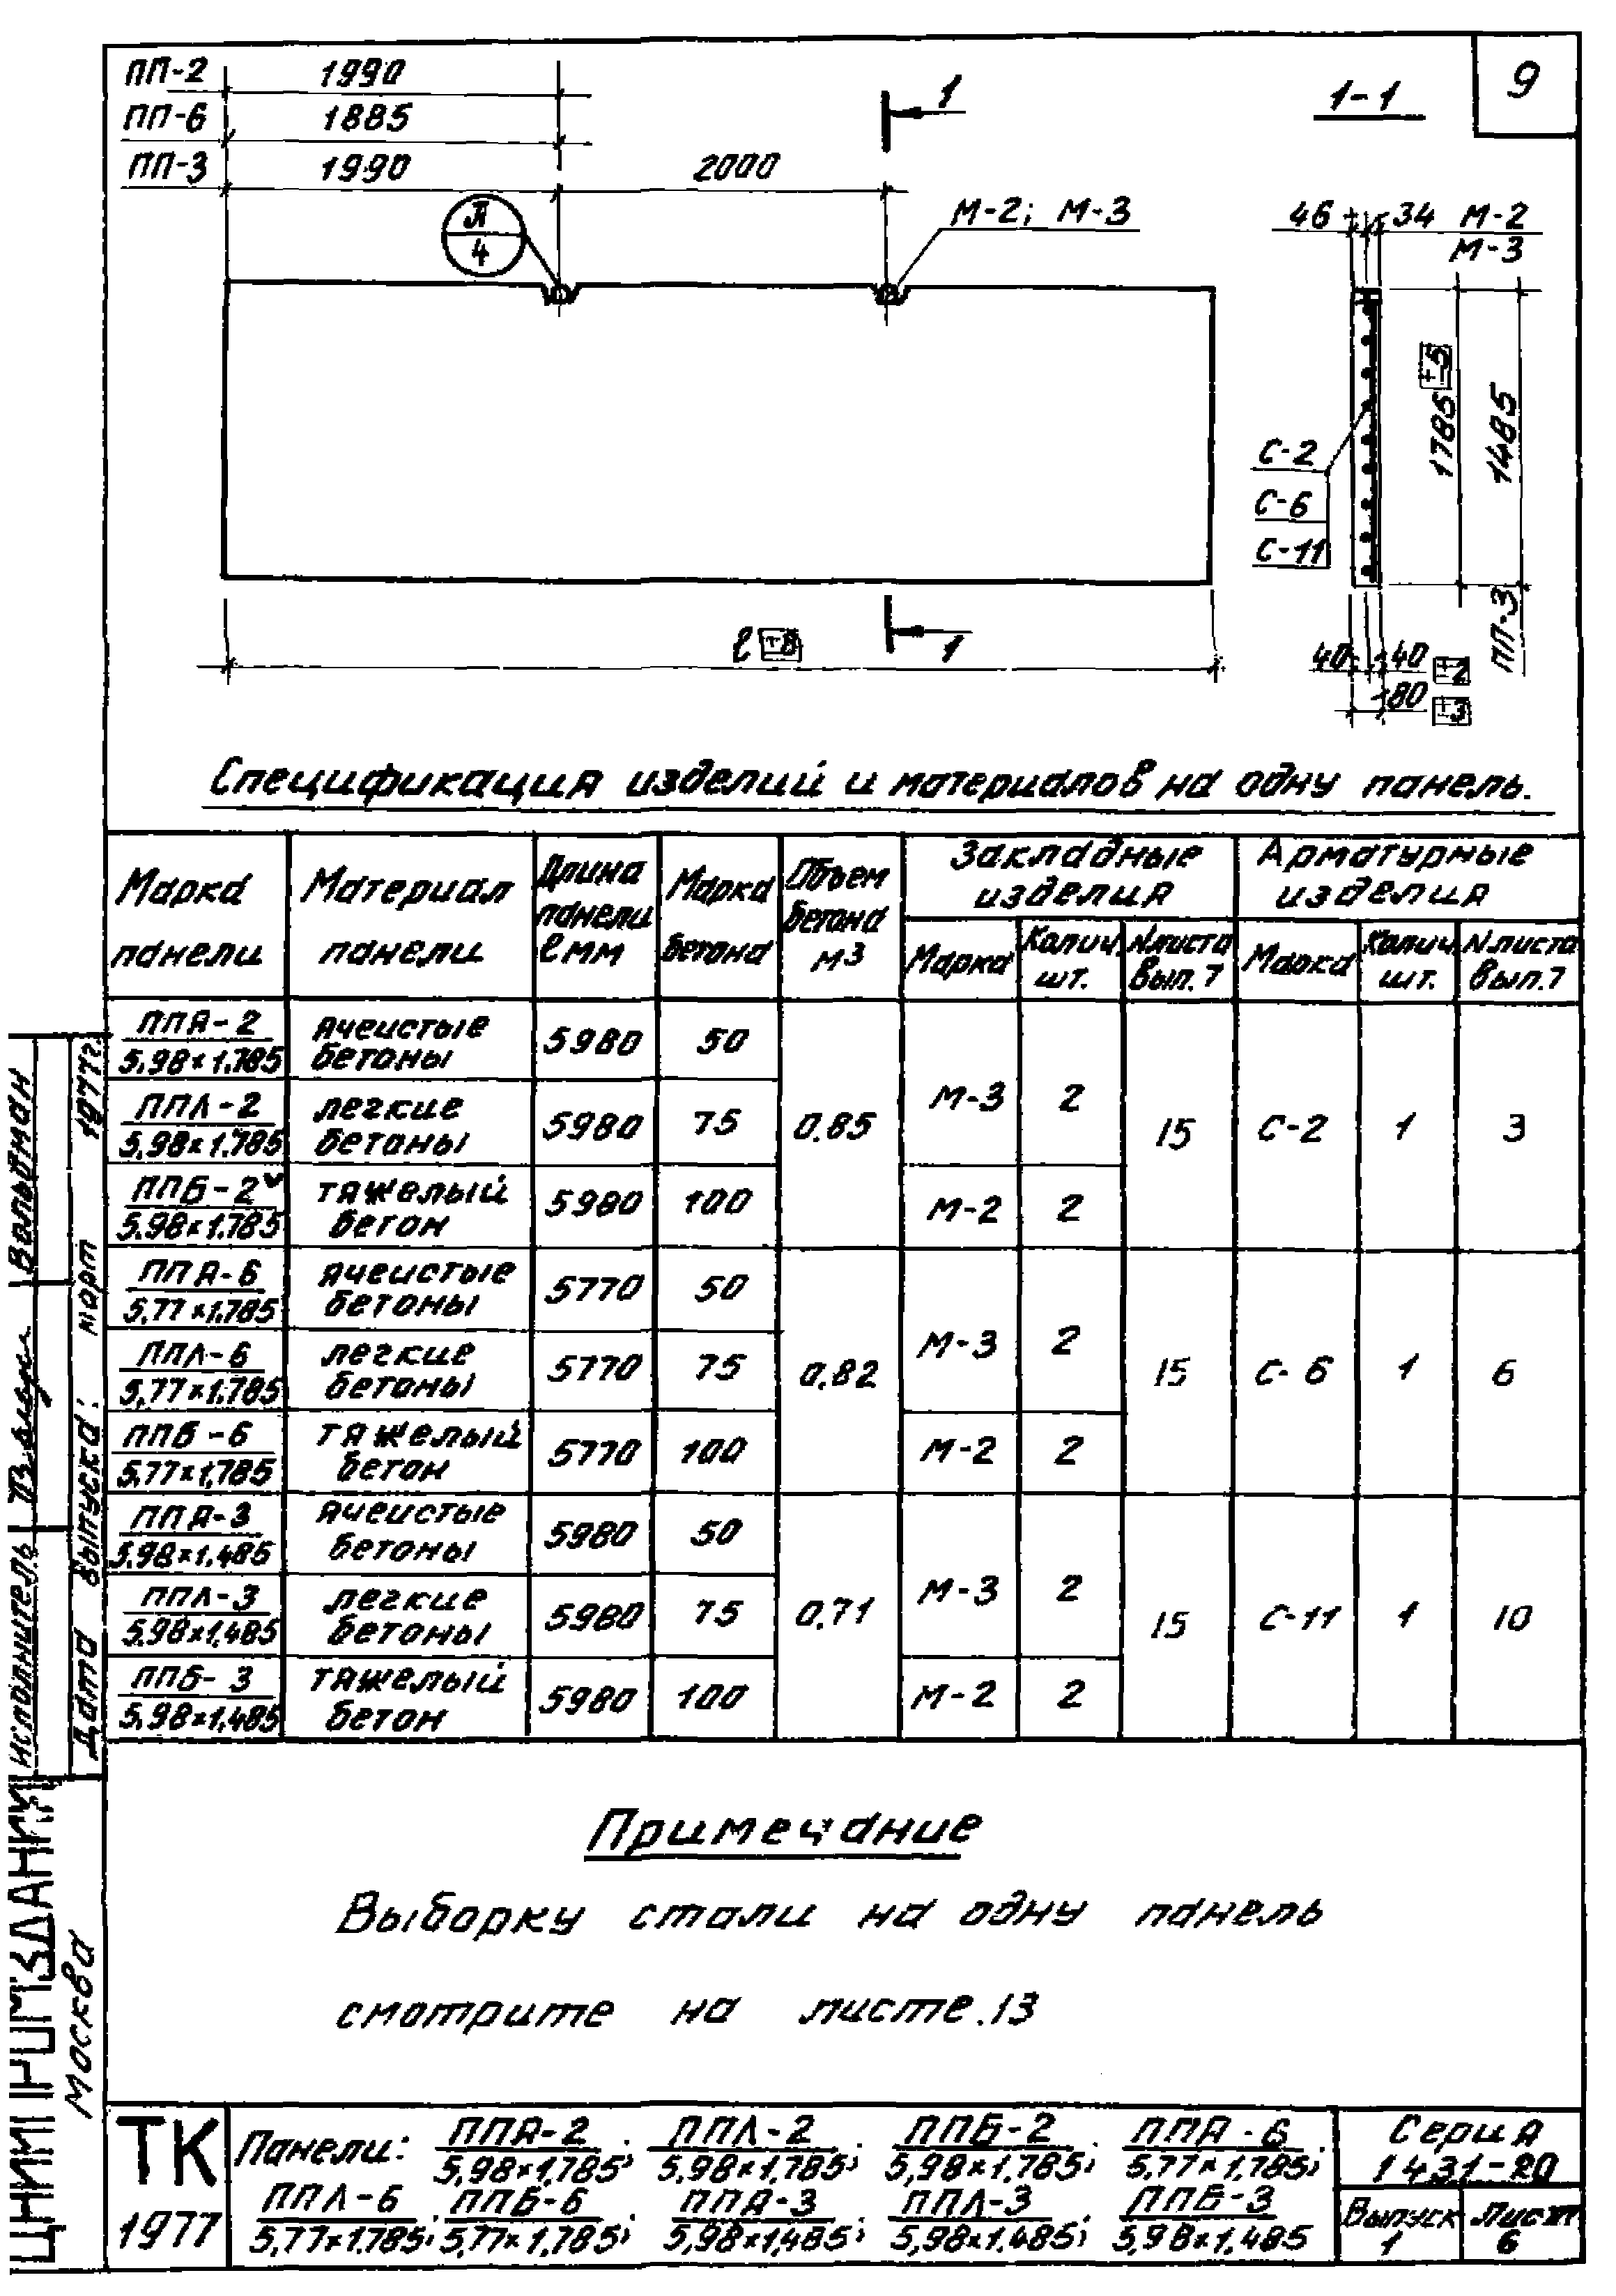 9
ПП-2 1990
ПП-6 1885
ПП-3 1990 2000
1
1-1
Л
4
М-2; М-3
46 34 М-2
М-3
1785 ±5
1485
ПП-3
С-2
С-6
С-11
ℓ ±8
1
40 40 ±2
80 ±3
Спецификация изделий и материалов на одну панель.
Марка панели
Материал панели
Длина панели ℓ мм
Марка бетона
Объем бетона м³
Закладные изделия
Арматурные изделия
Марка
Колич. шт.
N листа вып. 7
Марка
Колич. шт.
N листа вып. 7
ППЯ-2 ячеистые 5980 50
5.98×1.785 бетоны
М-3 2
ППЛ-2 легкие 5980 75 0.85 15 С-2 1 3
5.98×1.785 бетоны
ППБ-2 тяжелый 5980 100 М-2 2
5.98×1.785 бетон
ППЯ-6 ячеистые 5770 50
5,77×1.785 бетоны
М-3 2
ППЛ-6 легкие 5770 75 0.82 15 С-6 1 6
5,77×1.785 бетоны
ППБ-6 тяжелый 5770 100 М-2 2
5,77×1,785 бетон
ППЯ-3 ячеистые 5980 50
5.98×1.485 бетоны
М-3 2
ППЛ-3 легкие 5980 75 0.71 15 С-11 1 10
5.98×1,485 бетоны
ППБ-3 тяжелый 5980 100 М-2 2
5.98×1,485 бетон
Примечание
Выборку стали на одну панель
смотрите на листе.13
исполнитель
Дата выпуска: март 1977г.
ЦНИИПРОМЗДАНИЙ
Москва
ТК
1977
Панели: ППЯ-2 ; ППЛ-2 ; ППБ-2 ; ППЯ-6 ;
5,98×1,785 5,98×1,785 5,98×1.785 5.77×1.785
ППЛ-6 ; ППБ-6 ; ППЯ-3 ; ППЛ-3 ; ППБ-3
5,77×1.785 5,77×1,785 5,98×1,485 5,98×1.485 5,98×1,485
Серия
1431-20
Выпуск
1
Лист
6